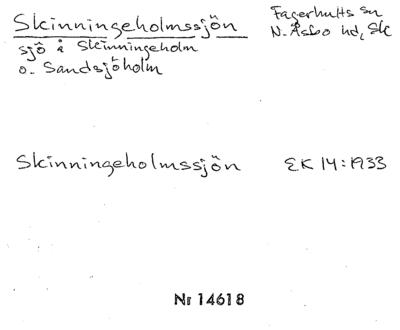 Skinningeholmssjön
Fagerhults sn
N. Åsbo hd, Sk
sjö å Skinningeholm
o. Sandsjöholm
Skinningeholmssjön
EK 14:1933
Nr 14618